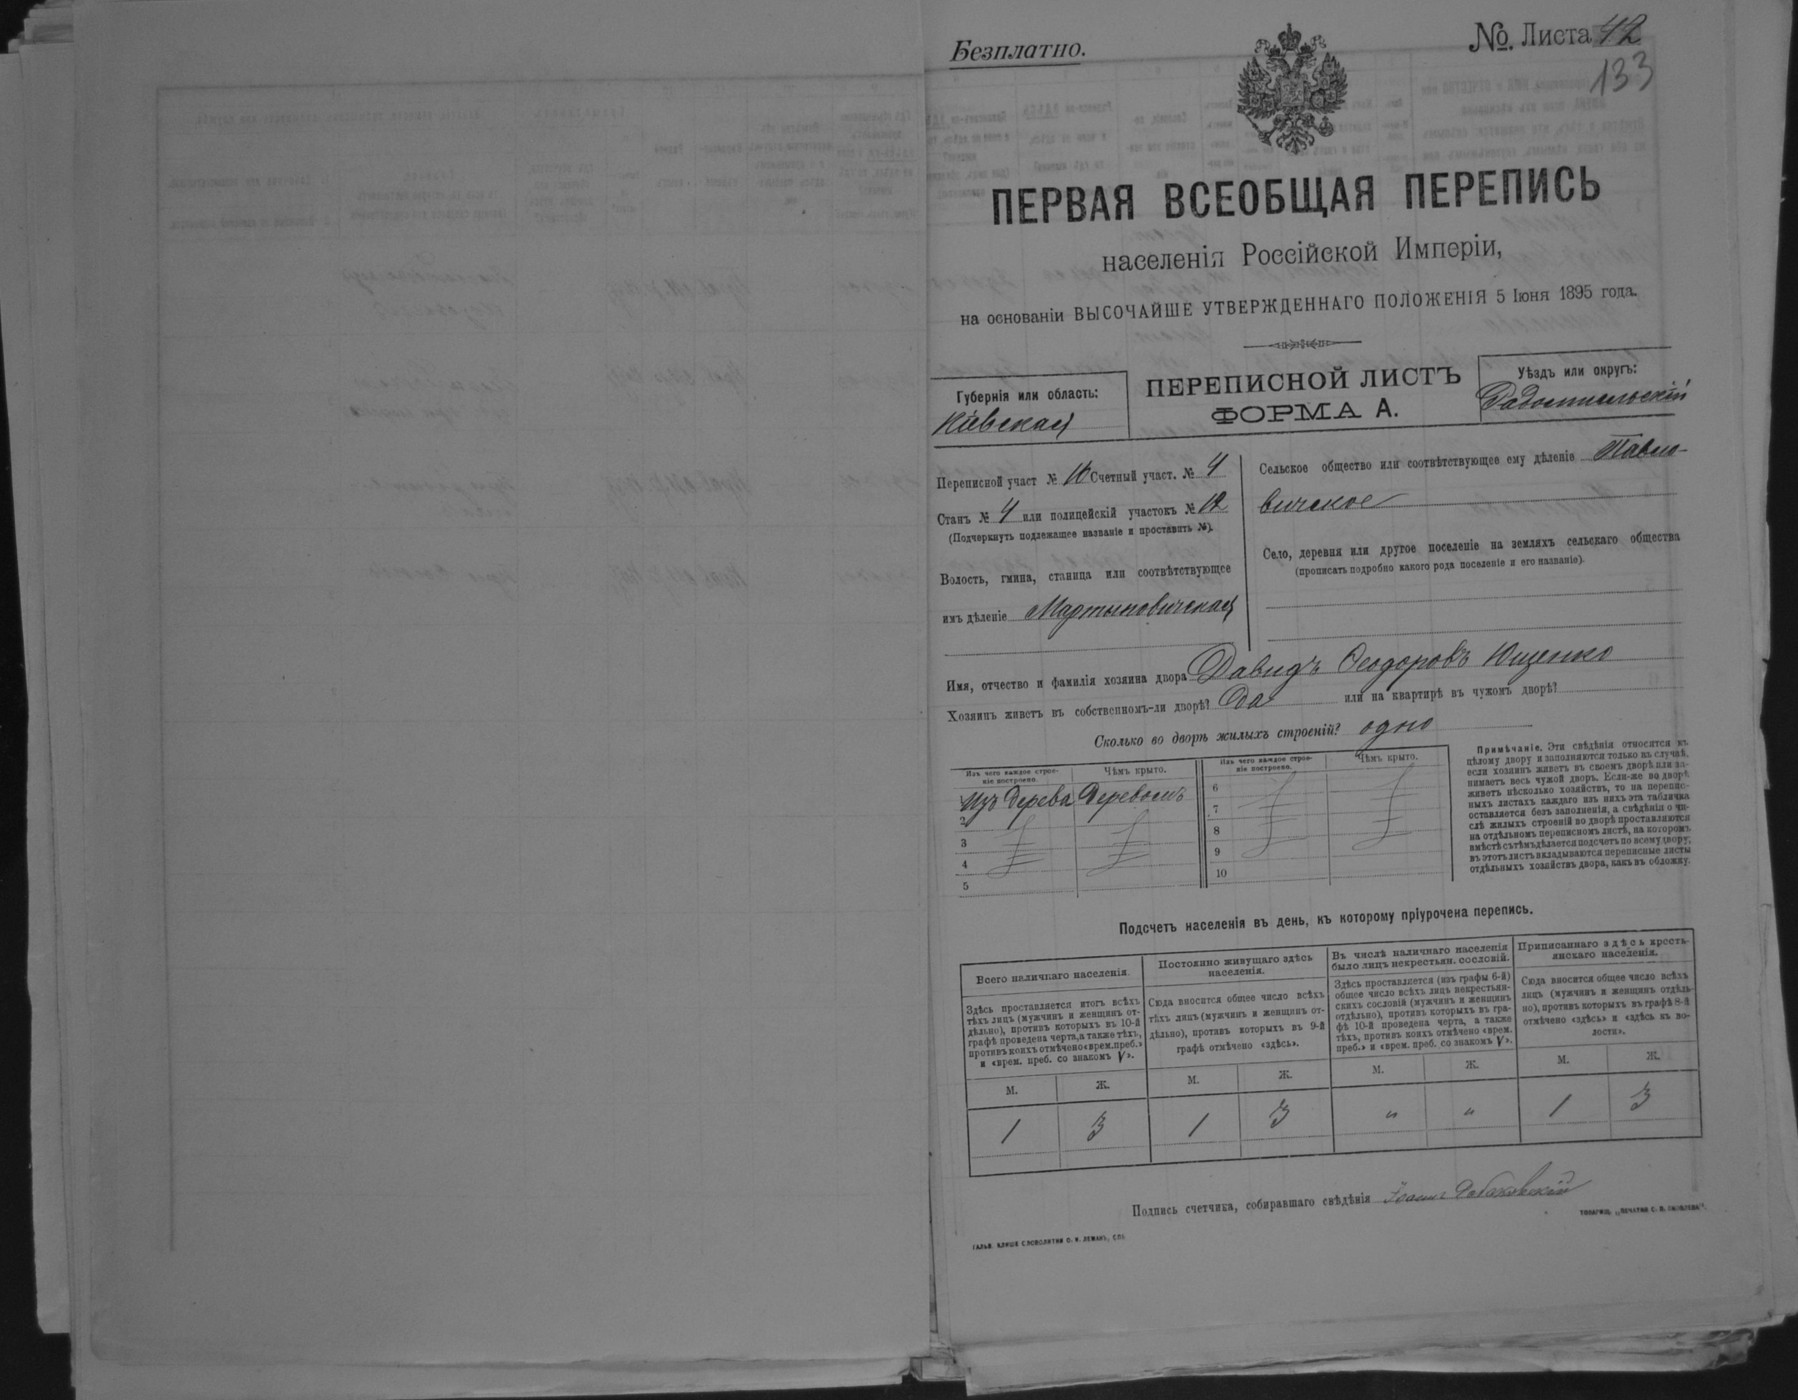 Безплатно.
№. Листа 42
133
ПЕРВАЯ ВСЕОБЩАЯ ПЕРЕПИСЬ
населенія Россійской Имперіи,
на основаніи ВЫСОЧАЙШЕ УТВЕРЖДЕННАГО ПОЛОЖЕНІЯ 5 Іюня 1895 года.
Губернія или область:
Кіевская
ПЕРЕПИСНОЙ ЛИСТЪ
ФОРМА А.
Уѣздъ или округъ:
Радомысльскій
Переписной участ № 10 Счетный участ. № 4
Станъ № 4 или полицейскій участокъ № 12
(Подчеркнуть подлежащее названіе и проставить №).
Волость, гмина, станица или соотвѣтствующее
имъ дѣленіе Мартыновичская
Сельское общество или соотвѣтствующее ему дѣленіе Павло-
вичское
Село, деревня или другое поселеніе на земляхъ сельскаго общества
(прописать подробно какого рода поселеніе и его названіе).
Имя, отчество и фамилія хозяина двора Давидъ Ѳеодоровъ Ющенко
Хозяинъ живетъ въ собственномъ-ли дворѣ? Да или на квартирѣ въ чужомъ дворѣ?
Сколько во дворѣ жилыхъ строеній? одно
Изъ чего каждое строе-
ніе построено.
Чѣмъ крыто.
Изъ дерева Деревомъ
2
3
4
5
Изъ чего каждое строе-
ніе построено.
Чѣмъ крыто.
6
7
8
9
10
Примѣчаніе. Эти свѣдѣнія относятся къ
цѣлому двору и заполняются только въ случаѣ,
если хозяинъ живетъ въ своемъ дворѣ или за-
нимаетъ весь чужой дворъ. Если-же во дворѣ
живетъ нѣсколько хозяйствъ, то на перепис-
ныхъ листахъ каждаго изъ нихъ эта табличка
оставляется безъ заполненія, а свѣдѣнія о чи-
слѣ жилыхъ строеній во дворѣ проставляются
на отдѣльномъ переписномъ листѣ, на которомъ
вмѣстѣ съ тѣмъ дѣлается подсчетъ по всему двору;
въ этотъ листъ вкладываются переписные листы
отдѣльныхъ хозяйствъ двора, какъ въ обложку.
Подсчетъ населенія въ день, къ которому пріурочена перепись.
Всего наличнаго населенія.
Здѣсь проставляется итогъ всѣхъ
тѣхъ лицъ (мужчинъ и женщинъ от-
дѣльно), противъ которыхъ въ 10-й
графѣ проведена черта, а также тѣхъ,
противъ коихъ отмѣчено «врем. преб.»
и «врем. преб. со знакомъ V».
М. Ж.
1 3
Постоянно живущаго здѣсь
населенія.
Сюда вносится общее число всѣхъ
тѣхъ лицъ (мужчинъ и женщинъ от-
дѣльно), противъ которыхъ въ 9-й
графѣ отмѣчено «здѣсь».
М. Ж.
1 3
Въ числѣ наличнаго населенія
было лицъ некрестьян. сословій.
Здѣсь проставляется (изъ графы 6-й)
общее число всѣхъ лицъ некрестьян-
скихъ сословій (мужчинъ и женщинъ
отдѣльно), противъ которыхъ въ гра-
фѣ 10-й проведена черта, а также
тѣхъ, противъ коихъ отмѣчено «врем.
преб.» и «врем. преб. со знакомъ V».
М. Ж.
" "
Приписаннаго здѣсь кресть-
янскаго населенія.
Сюда вносится общее число всѣхъ
лицъ (мужчинъ и женщинъ отдѣль-
но), противъ которыхъ въ графѣ 8-й
отмѣчено «здѣсь» и «здѣсь въ во-
лости».
М. Ж.
1 3
Подпись счетчика, собиравшаго свѣдѣнія
ГАЛЬВ. КЛИШЕ СЛОВОЛИТНИ О. И. ЛЕМАНЪ, СПБ.
ТОВАРИЩ. „ПЕЧАТНЯ С. П. ЯКОВЛЕВА".